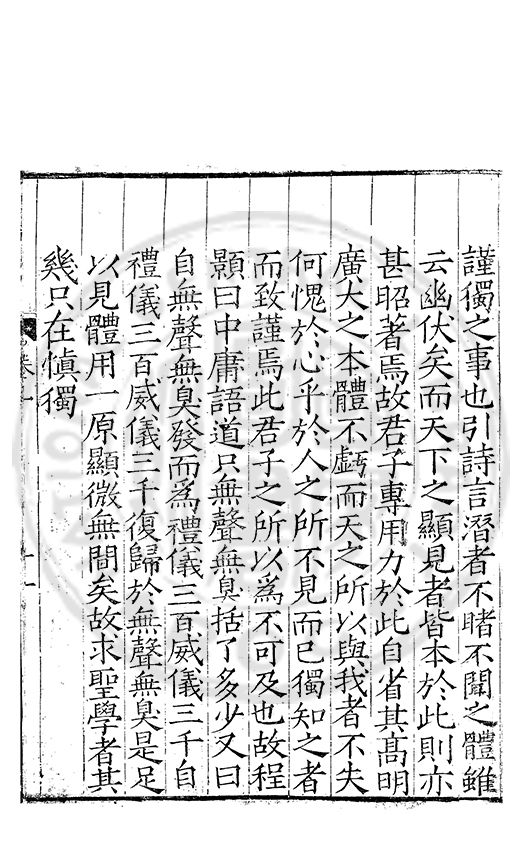 謹獨之事也引詩言潛者不睹不聞之體雖
云幽伏矣而天下之顯見者皆本於此則亦
甚昭著焉故君子專用力於此自省其髙明
廣大之本體不虧而天之所以與我者不失
何愧於心乎於人之所不見而已獨知之者
而致謹焉此君子之所以為不可及也故程
顥曰中庸語道只無聲無臭括了多少又曰
自無聲無臭發而為禮儀三百威儀三千自
禮儀三百威儀三千復歸於無聲無臭是足
以見體用一原顯微無間矣故求聖學者其
幾只在慎獨